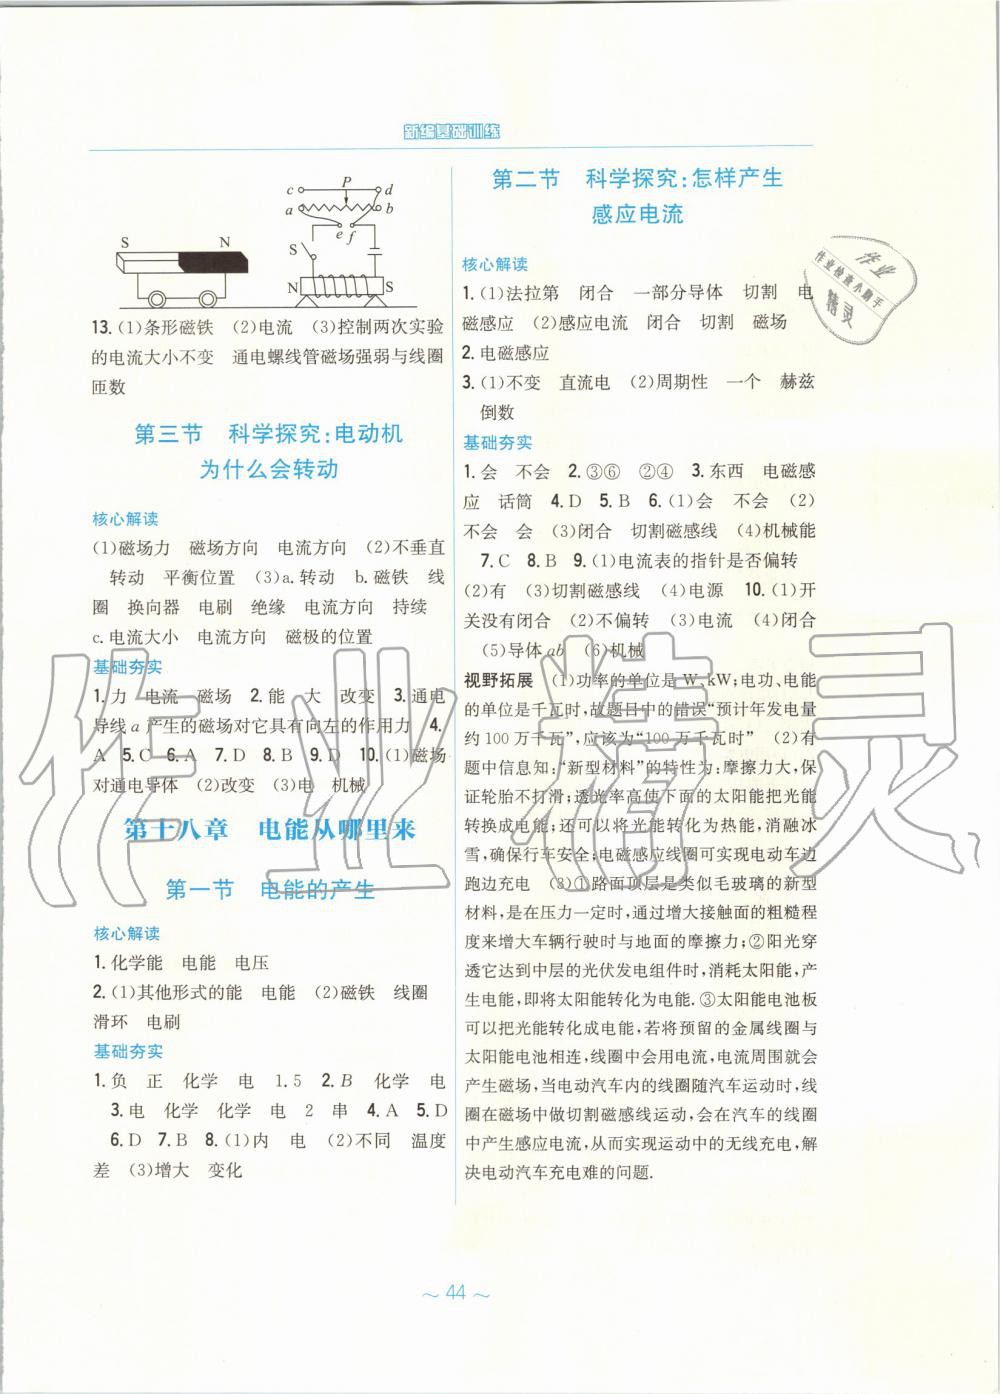 新编基础训练
c P d
a b
e f
S N
S
N S
13. (1)条形磁铁 (2)电流 (3)控制两次实验
的电流大小不变 通电螺线管磁场强弱与线圈
匝数
第三节 科学探究:电动机
为什么会转动
核心解读
(1)磁场力 磁场方向 电流方向 (2)不垂直
转动 平衡位置 (3)a.转动 b.磁铁 线
圈 换向器 电刷 绝缘 电流方向 持续
c.电流大小 电流方向 磁极的位置
基础夯实
1.力 电流 磁场 2.能 大 改变 3.通电
导线a产生的磁场对它具有向左的作用力 4.
A 5.C 6.A 7.D 8.B 9.D 10.(1)磁场
对通电导体 (2)改变 (3)电 机械
第十八章 电能从哪里来
第一节 电能的产生
核心解读
1.化学能 电能 电压
2.(1)其他形式的能 电能 (2)磁铁 线圈
滑环 电刷
基础夯实
1.负 正 化学 电 1.5 2.B 化学 电
3.电 化学 化学 电 2 串 4.A 5.D
6.D 7.B 8.(1)内 电 (2)不同 温度
差 (3)增大 变化
第二节 科学探究:怎样产生
感应电流
核心解读
1.(1)法拉第 闭合 一部分导体 切割 电
磁感应 (2)感应电流 闭合 切割 磁场
2.电磁感应
3.(1)不变 直流电 (2)周期性 一个 赫兹
倒数
基础夯实
1.会 不会 2.③⑥ ②④ 3.东西 电磁感
应 话筒 4.D 5.B 6.(1)会 不会 (2)
不会 会 (3)闭合 切割磁感线 (4)机械能
7.C 8.B 9.(1)电流表的指针是否偏转
(2)有 (3)切割磁感线 (4)电源 10.(1)开
关没有闭合 (2)不偏转 (3)电流 (4)闭合
(5)导体ab (6)机械
视野拓展 (1)功率的单位是W、kW;电功、电能
的单位是千瓦时,故题目中的错误“预计年发电量
约100万千瓦”,应该为“100万千瓦时” (2)有
题中信息知:“新型材料”的特性为:摩擦力大,保
证轮胎不打滑;透光率高使下面的太阳能把光能
转换成电能;还可以将光能转化为热能,消融冰
雪,确保行车安全;电磁感应线圈可实现电动车边
跑边充电 (3)①路面顶层是类似毛玻璃的新型
材料,是在压力一定时,通过增大接触面的粗糙程
度来增大车辆行驶时与地面的摩擦力;②阳光穿
透它达到中层的光伏发电组件时,消耗太阳能,产
生电能,即将太阳能转化为电能.③太阳能电池板
可以把光能转化成电能,若将预留的金属线圈与
太阳能电池相连,线圈中会用电流,电流周围就会
产生磁场,当电动汽车内的线圈随汽车运动时,线
圈在磁场中做切割磁感线运动,会在汽车的线圈
中产生感应电流,从而实现运动中的无线充电,解
决电动汽车充电难的问题.
作业
作业检查小助手
精灵
作业精灵
~ 44 ~